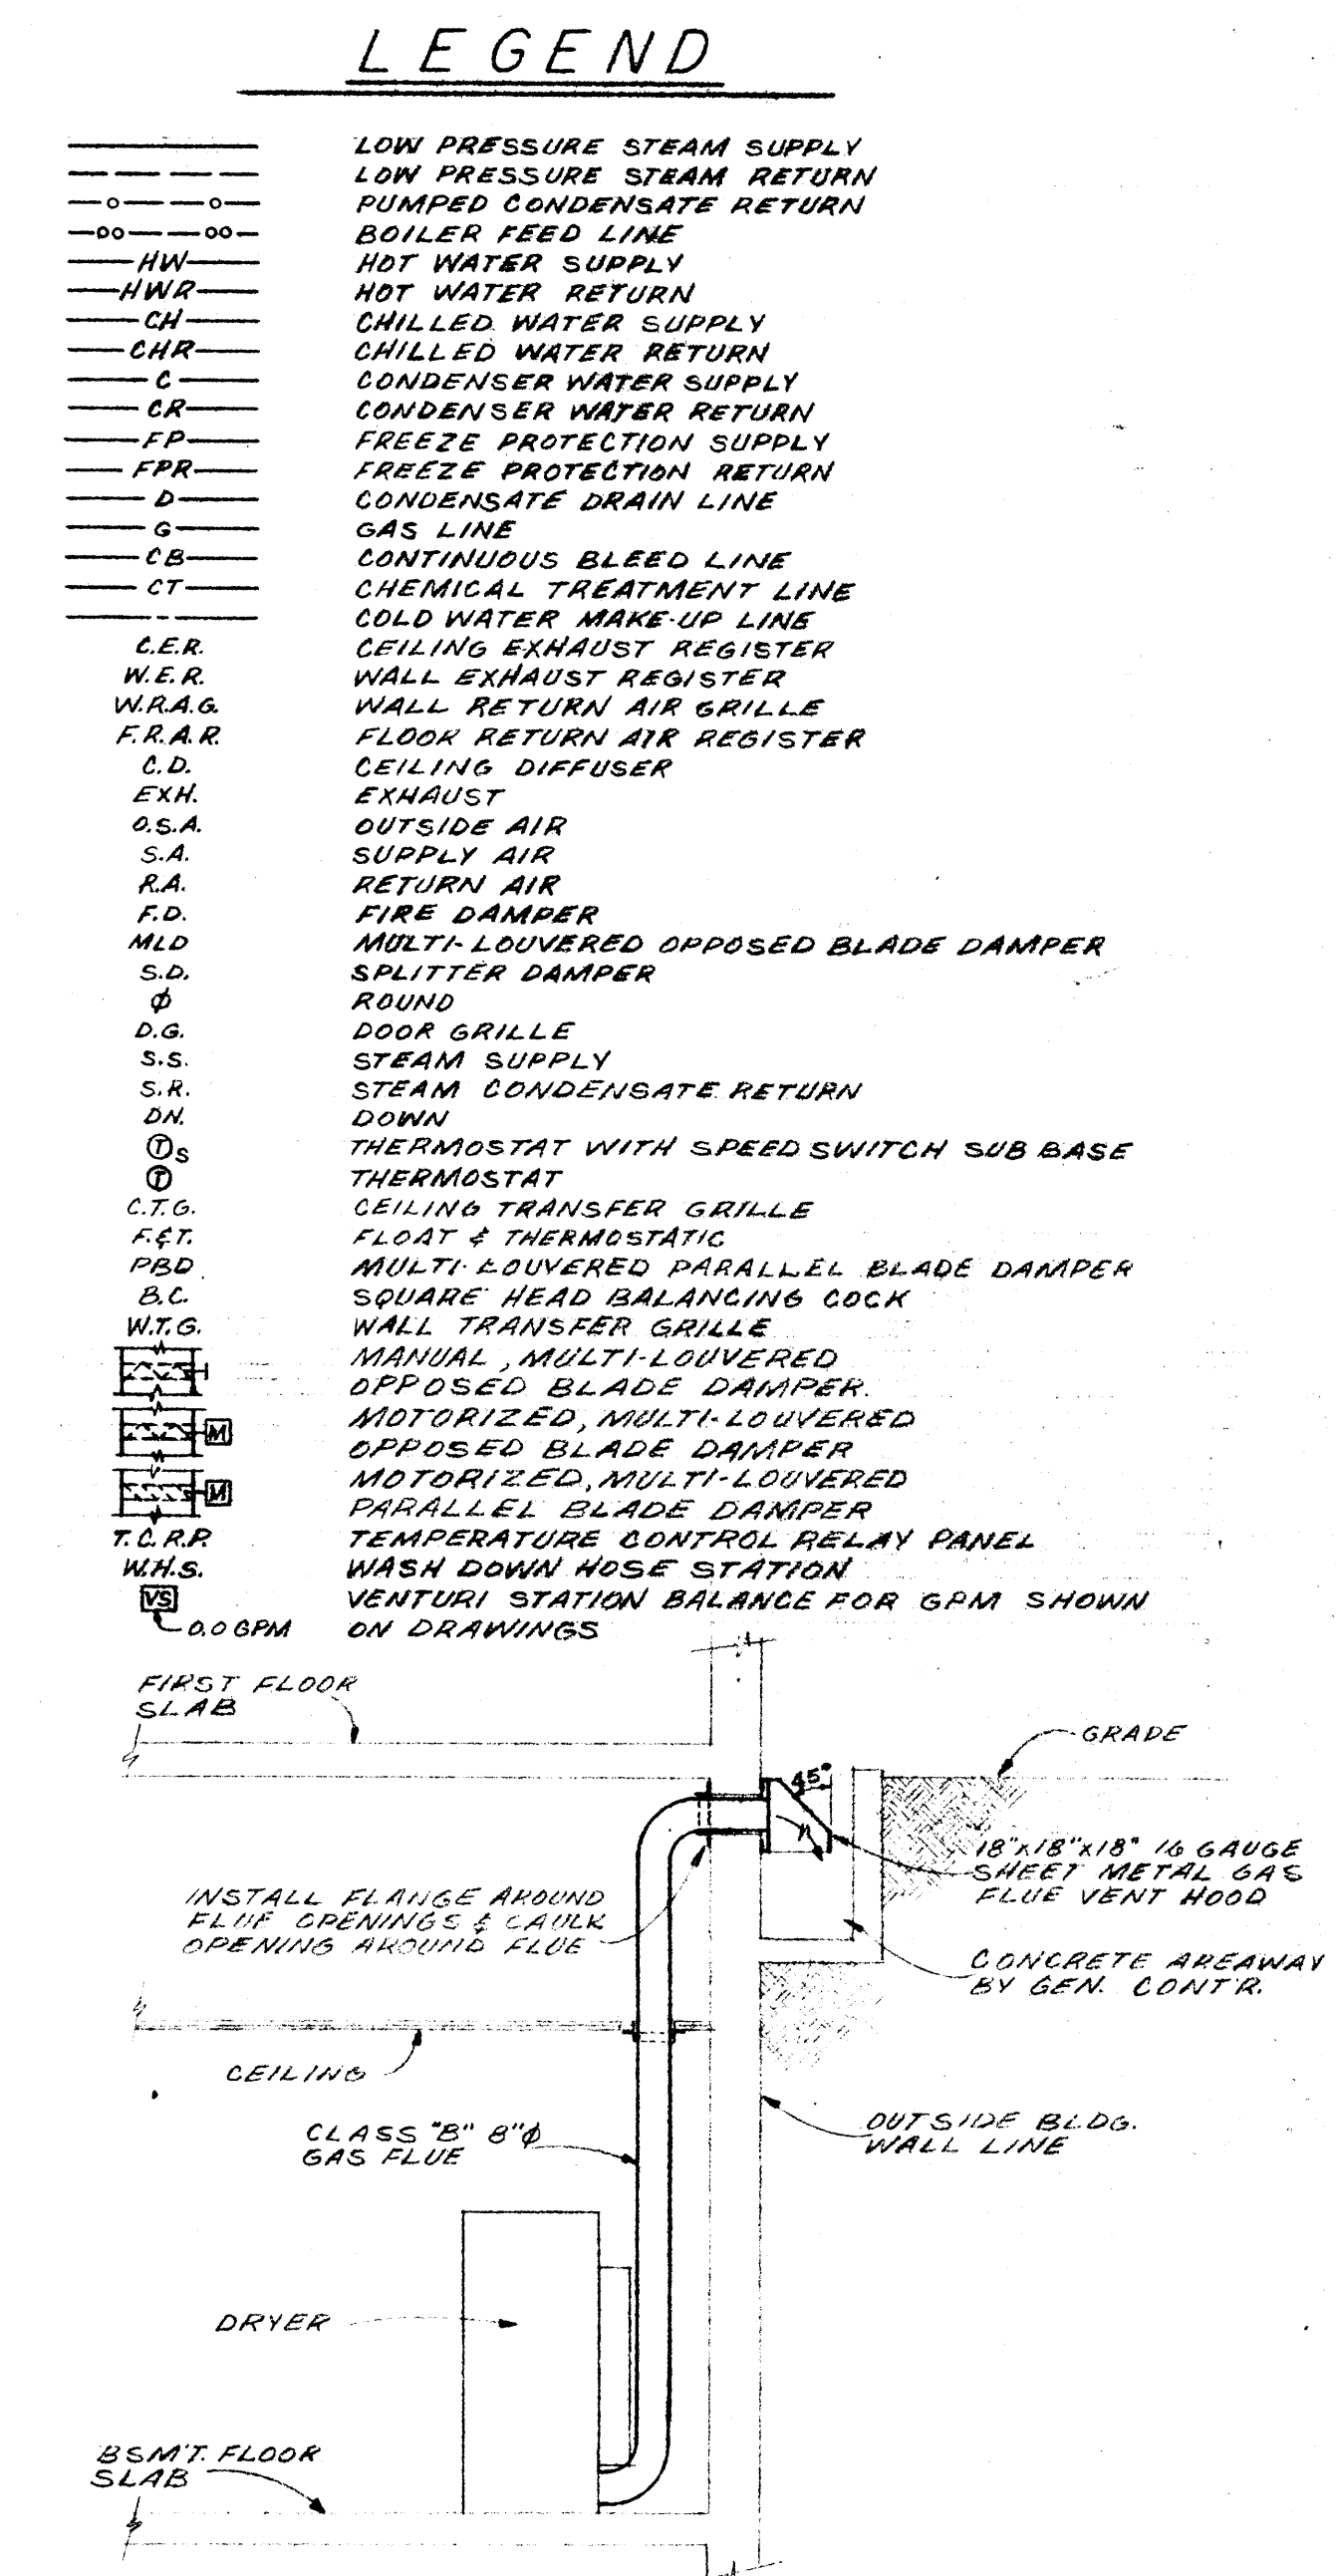 LEGEND
LOW PRESSURE STEAM SUPPLY
LOW PRESSURE STEAM RETURN
PUMPED CONDENSATE RETURN
BOILER FEED LINE
HW HOT WATER SUPPLY
HWR HOT WATER RETURN
CH CHILLED WATER SUPPLY
CHR CHILLED WATER RETURN
C CONDENSER WATER SUPPLY
CR CONDENSER WATER RETURN
FP FREEZE PROTECTION SUPPLY
FPR FREEZE PROTECTION RETURN
D CONDENSATE DRAIN LINE
G GAS LINE
CB CONTINUOUS BLEED LINE
CT CHEMICAL TREATMENT LINE
COLD WATER MAKE-UP LINE
C.E.R. CEILING EXHAUST REGISTER
W.E.R. WALL EXHAUST REGISTER
W.R.A.G. WALL RETURN AIR GRILLE
F.R.A.R. FLOOR RETURN AIR REGISTER
C.D. CEILING DIFFUSER
EXH. EXHAUST
O.S.A. OUTSIDE AIR
S.A. SUPPLY AIR
R.A. RETURN AIR
F.D. FIRE DAMPER
MLD MULTI-LOUVERED OPPOSED BLADE DAMPER
S.D. SPLITTER DAMPER
φ ROUND
D.G. DOOR GRILLE
S.S. STEAM SUPPLY
S.R. STEAM CONDENSATE RETURN
DN. DOWN
T S THERMOSTAT WITH SPEED SWITCH SUB BASE
T THERMOSTAT
C.T.G. CEILING TRANSFER GRILLE
F.&T. FLOAT & THERMOSTATIC
PBD MULTI-LOUVERED PARALLEL BLADE DAMPER
B.C. SQUARE HEAD BALANCING COCK
W.T.G. WALL TRANSFER GRILLE
MANUAL, MULTI-LOUVERED
OPPOSED BLADE DAMPER.
M MOTORIZED, MULTI-LOUVERED
OPPOSED BLADE DAMPER
M MOTORIZED, MULTI-LOUVERED
PARALLEL BLADE DAMPER
T.C.R.P. TEMPERATURE CONTROL RELAY PANEL
W.H.S. WASH DOWN HOSE STATION
VS VENTURI STATION BALANCE FOR GPM SHOWN
0.0 GPM ON DRAWINGS
FIRST FLOOR
SLAB
GRADE
45°
18"x18"x18" 16 GAUGE
SHEET METAL GAS
FLUE VENT HOOD
INSTALL FLANGE AROUND
FLUE OPENINGS & CAULK
OPENING AROUND FLUE
CONCRETE AREAWAY
BY GEN. CONT'R.
CEILING
CLASS "B" 8"φ
GAS FLUE
OUTSIDE BLDG.
WALL LINE
DRYER
BSM'T. FLOOR
SLAB